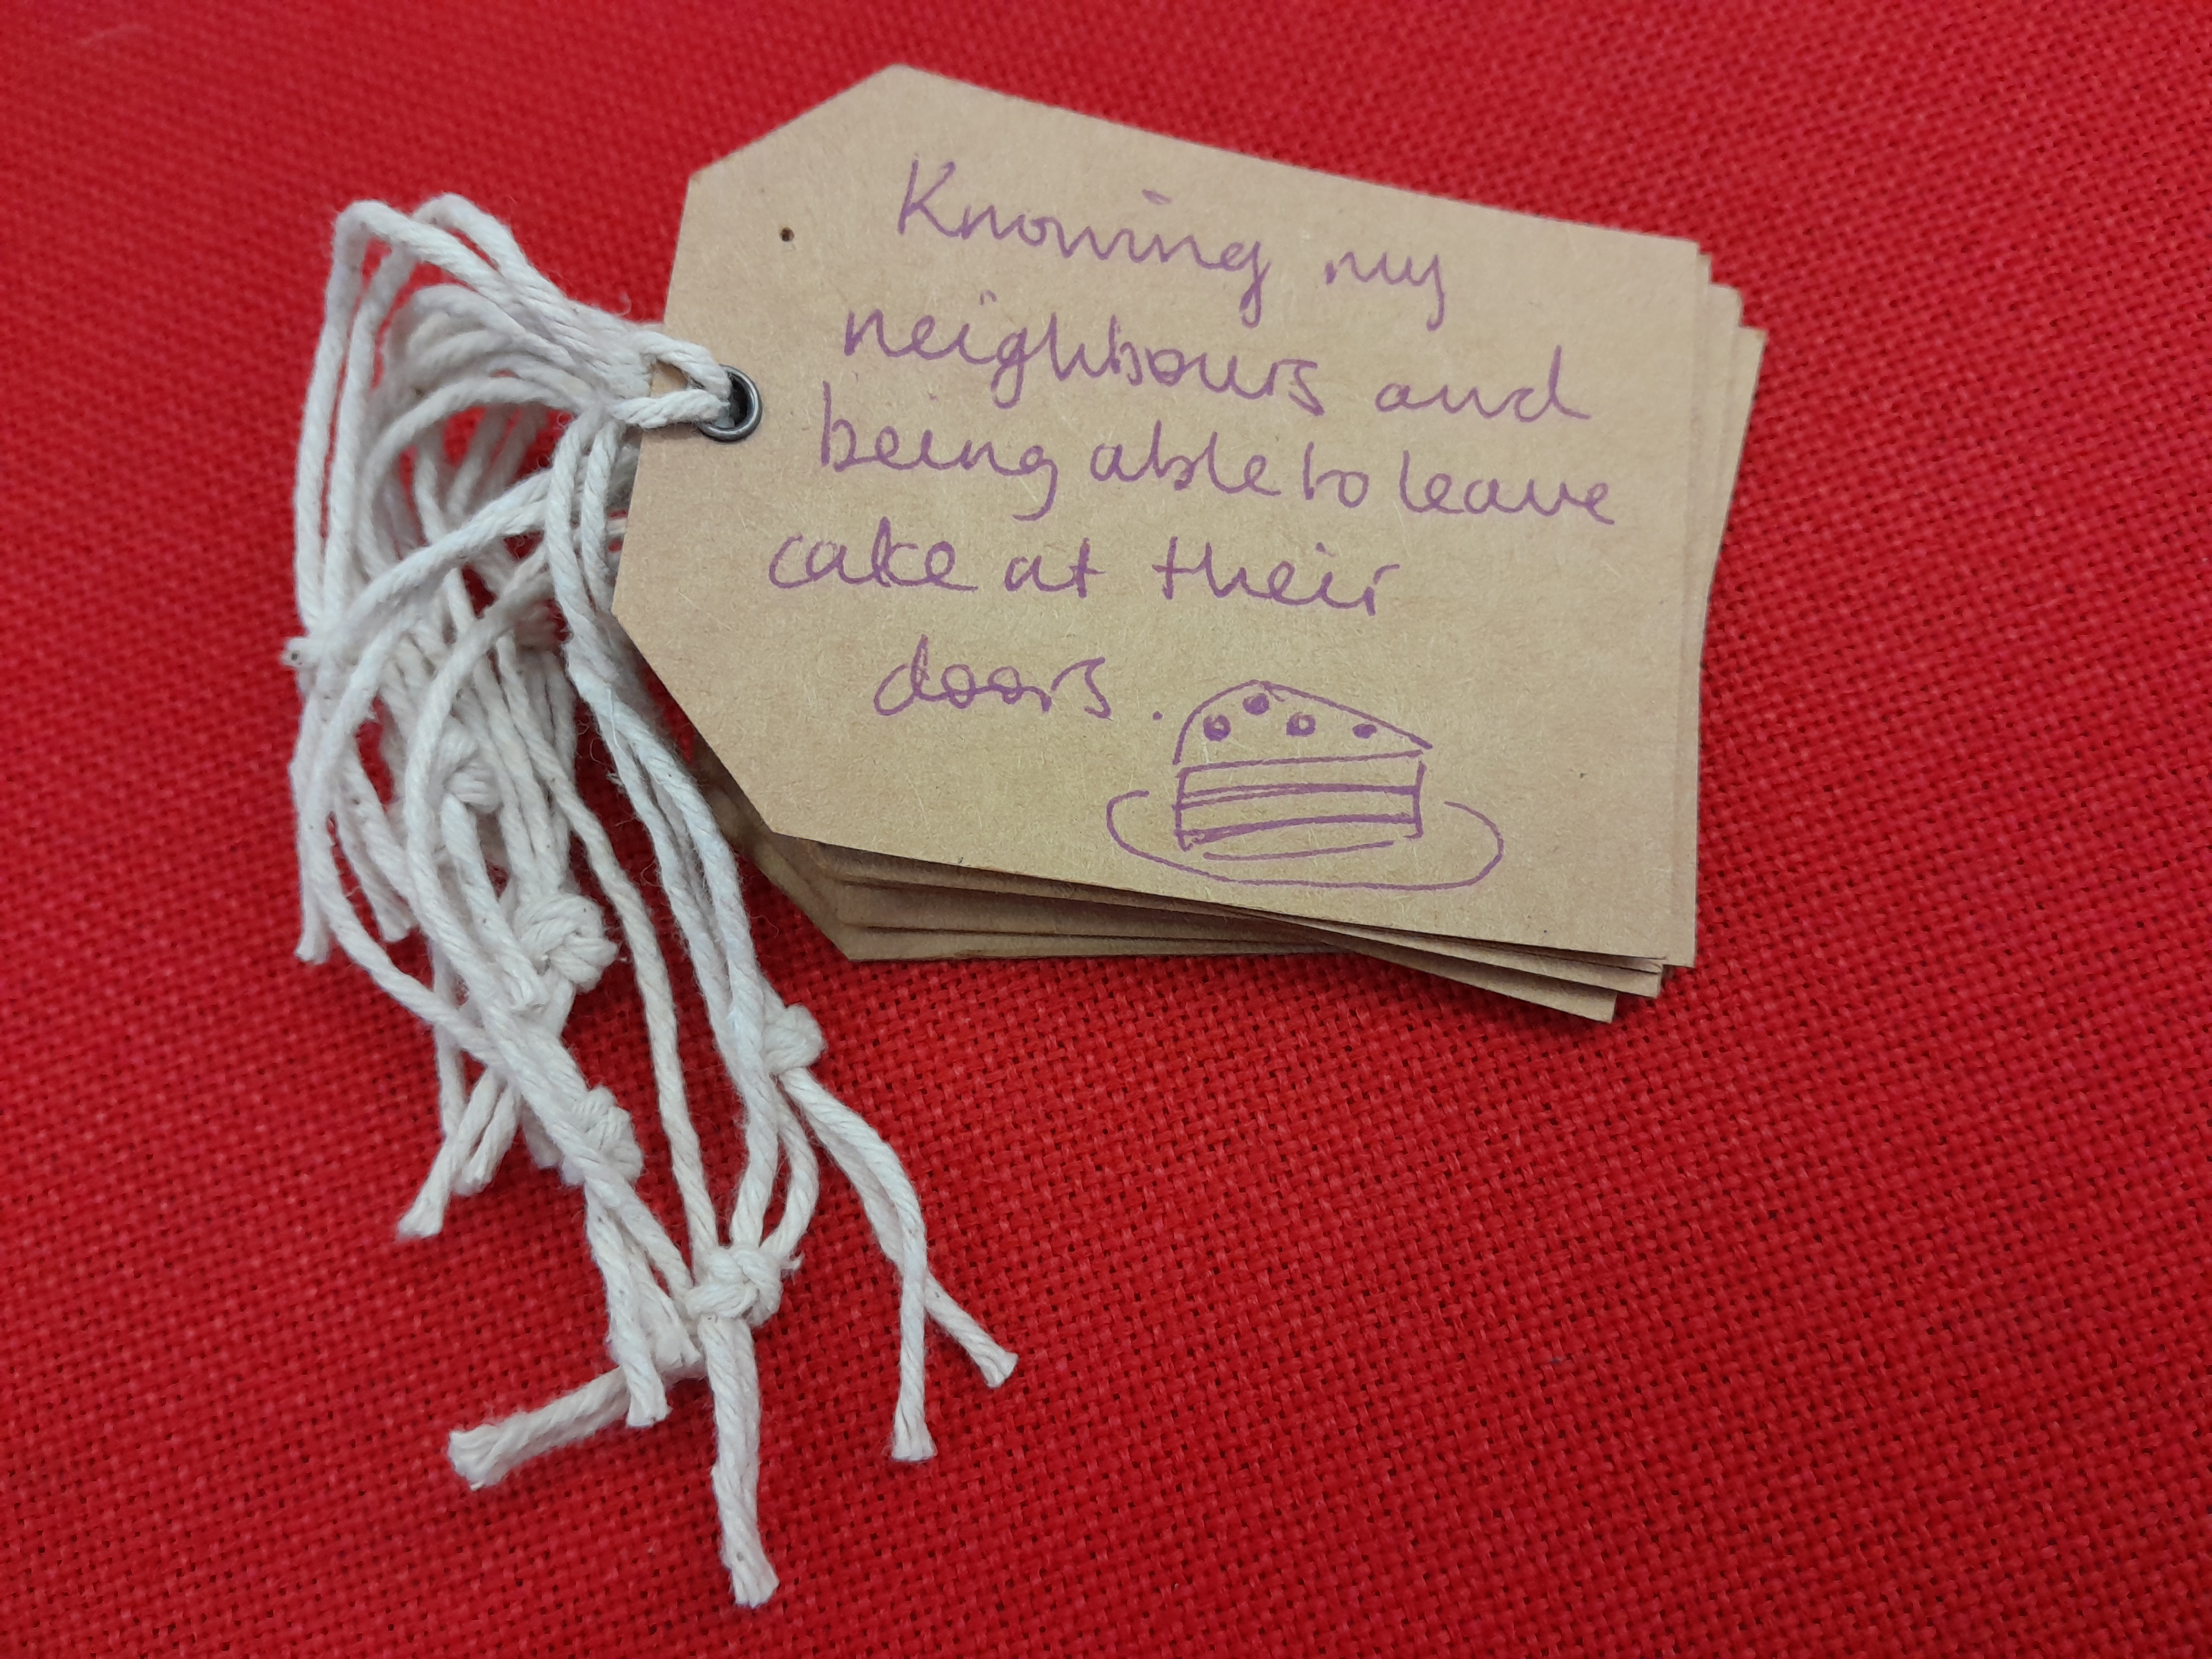 Knowing my
neighbours and
being able to leave
cake at their
doors.